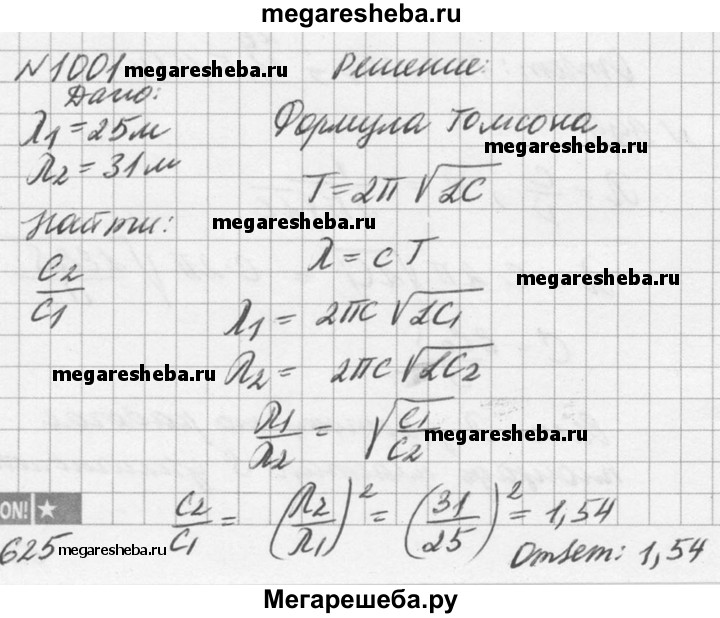 megaresheba.ru
N1001 megaresheba.ru Решение:
Дано:
λ1 = 25м Формула Томсона
megaresheba.ru
λ2 = 31м T = 2π √LC
Найти: megaresheba.ru
C2/C1 λ = cT
megaresheba.ru
λ1 = 2πc √LC1
megaresheba.ru λ2 = 2πc √LC2
λ1/λ2 = √C1/C2 megaresheba.ru
ON! ★
C2/C1 = (λ2/λ1)² = (31/25)² = 1,54
625 megaresheba.ru megaresheba.ru
Ответ: 1,54
Мегарешеба.ру